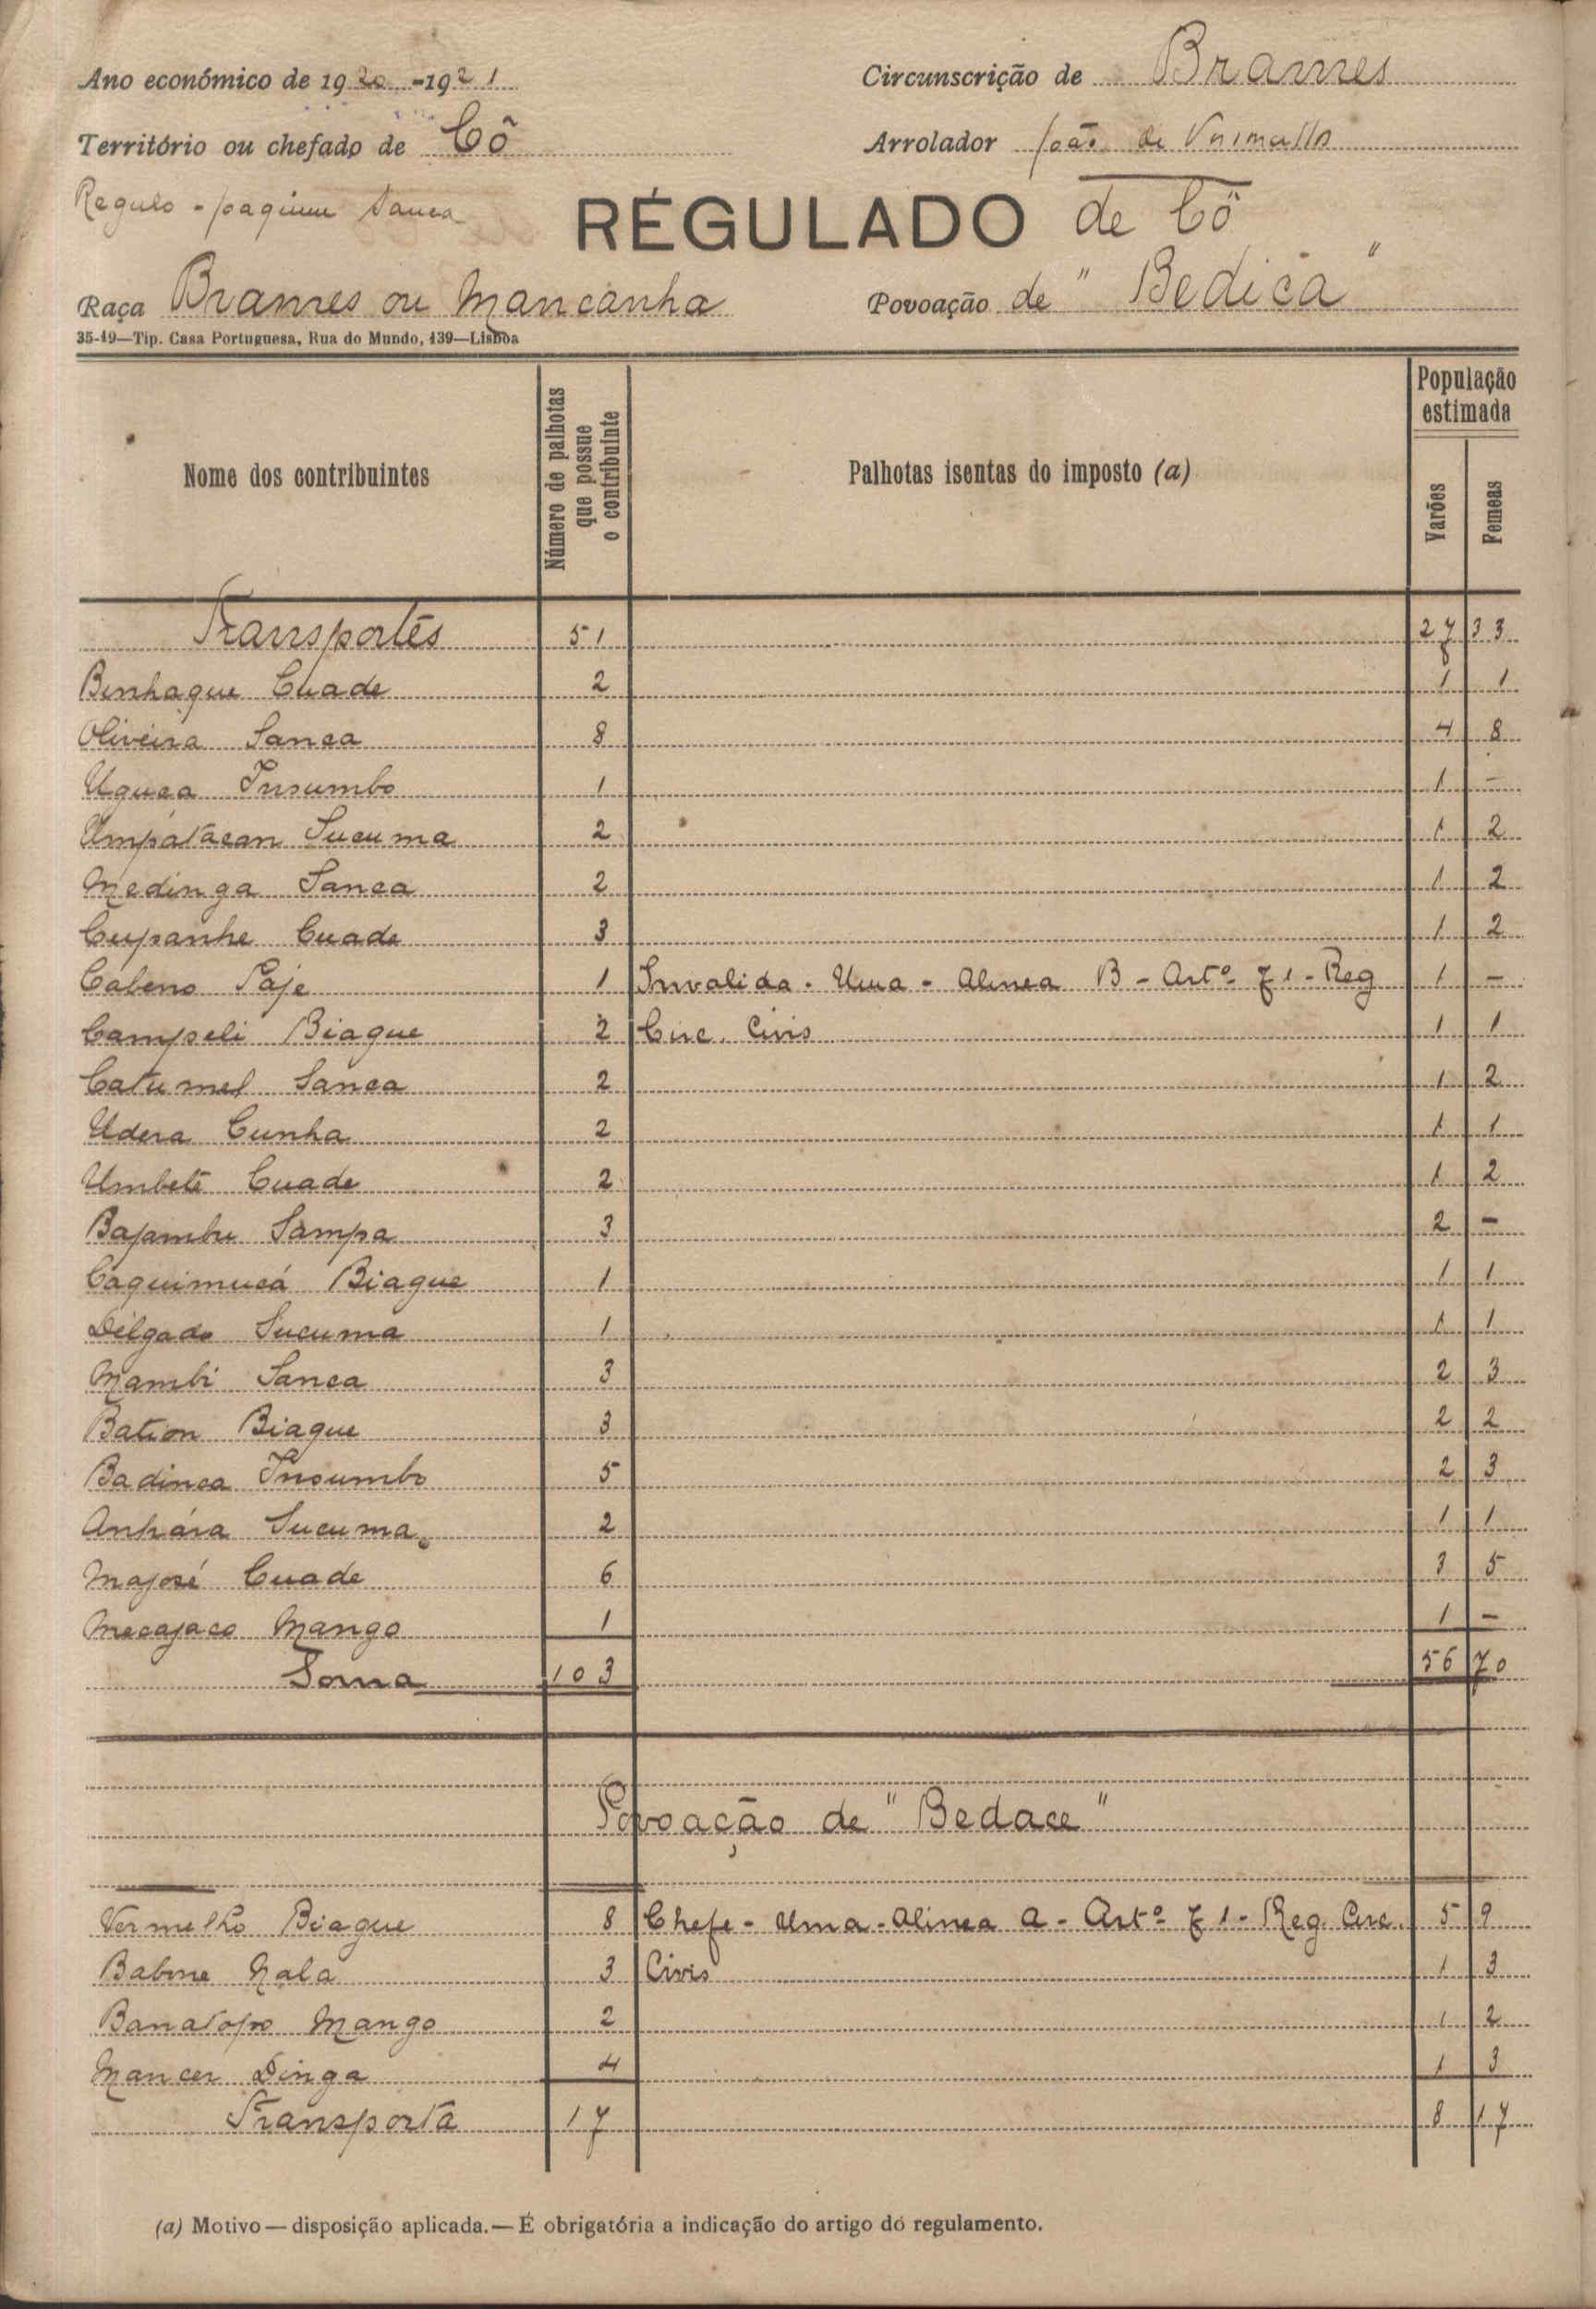 Ano económico de 1920-1921
Circunscrição de Brames
Território ou chefado de Cô
Arrolador João de
Regulo - Joaquim Sanca
RÉGULADO de Cô
Raça Brames ou Mancanha
Povoação de "Bedica"
35-19—Tip. Casa Portuguesa, Rua do Mundo, 139—Lisboa
Nome dos contribuintes
Número de palhotas que possue o contribuinte
Palhotas isentas do imposto (a)
População estimada
Varões
Femeas
Transportes 51 27 33
Binhaque Cuade 2 1 1
Oliveira Sanca 8 4 8
Uguca Insumbo 1 1 -
Umpatacan Sucuma 2 1 2
Medinga Sanca 2 1 2
Cupanhe Cuade 3 1 2
Cabeno Paje 1 Invalida - Uma - Alinea B - Artº 71 - Reg 1 -
Campeli Biague 2 Circ. Civis 1 1
Catumel Sanca 2 1 2
Udera Cunha 2 1 1
Umbeté Cuade 2 1 2
Bajambu Sampa 3 2 -
Caquimucá Biague 1 1 1
Delgado Sucuma 1 1 1
Mambi Sanca 3 2 3
Bation Biague 3 2 2
Badinca Insumbo 5 2 3
Anhára Sucuma 2 1 1
Majosé Cuade 6 3 5
Mecajaco Mango 1 1 -
Soma 103 56 70
Povoação de "Bedace"
Vermelho Biague 8 Chefe - Uma - Alinea A - Artº 71 - Reg. Circ. 5 9
Babine Nala 3 Civis 1 3
Banatopo Mango 2 1 2
Mancer Dinga 4 1 3
Transporta 17 8 17
(a) Motivo — disposição aplicada. — É obrigatória a indicação do artigo do regulamento.